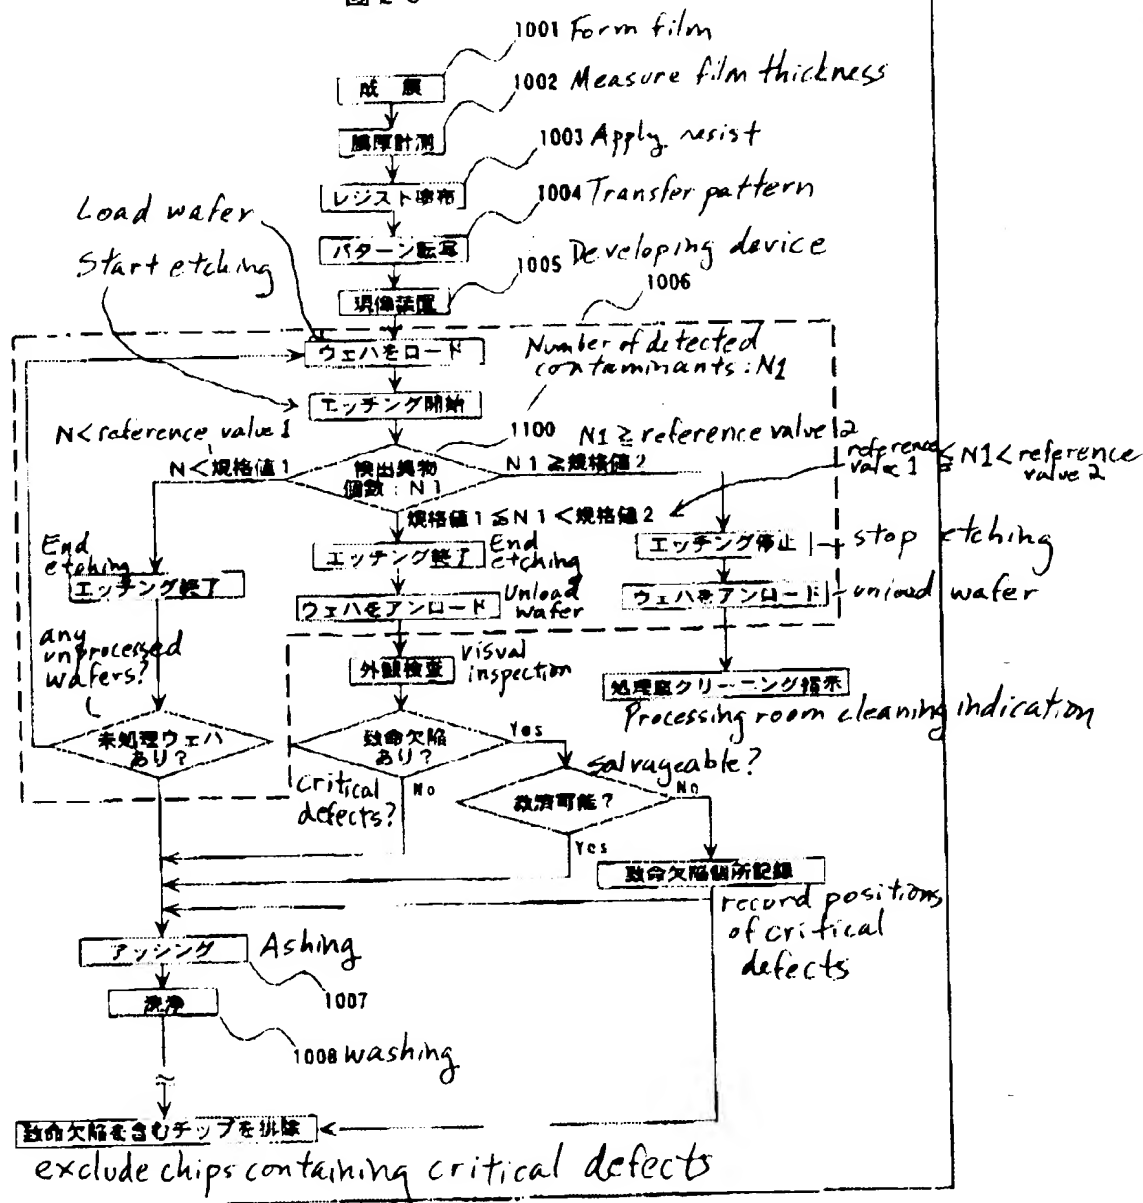 1001 Form film
成膜
1002 Measure film thickness
膜厚計測
1003 Apply resist
レジスト塗布
1004 Transfer pattern
パターン転写
1005 Developing device
現像装置
1006
Load wafer
ウェハをロード
Start etching
エッチング開始
Number of detected
contaminants: N1
1100
検出異物
個数：N1
N < reference value 1
N＜規格値1
N1 ≧ reference value 2
N1≧規格値2
reference value 1 ≦ N1 < reference value 2
規格値1≦N1＜規格値2
End
etching
エッチング終了
エッチング終了
End
etching
エッチング停止
stop etching
ウェハをアンロード
Unload
wafer
ウェハをアンロード
unload wafer
any
unprocessed
wafers?
未処理ウェハ
あり？
外観検査
visual
inspection
処理室クリーニング指示
Processing room cleaning indication
致命欠陥
あり？
Yes
No
critical
defects?
salvageable?
救済可能？
No
Yes
致命欠陥個所記録
record positions
of critical
defects
アッシング
Ashing
1007
洗浄
1008 washing
致命欠陥を含むチップを排除
exclude chips containing critical defects